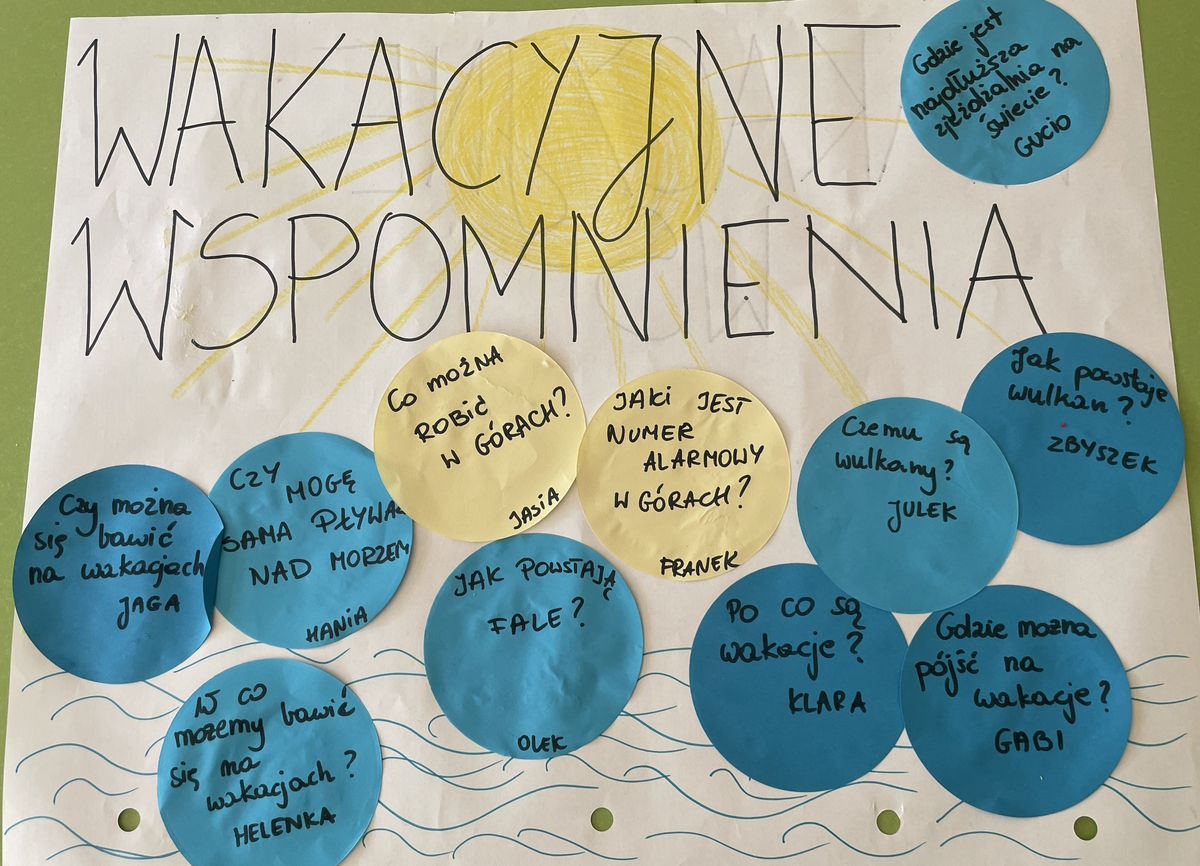 WAKACYJNE
WSPOMNIENIA
Gdzie jest
najdłuższa
zjeżdżalnia na
świecie?
GUCIO
Co można
ROBIĆ
W GÓRACH?
JASIA
JAKI JEST
NUMER
ALARMOWY
W GÓRACH?
FRANEK
Czemu są
wulkany?
JULEK
Jak powstaje
wulkan?
ZBYSZEK
Czy można
się bawić
na wakacjach
JAGA
CZY
MOGĘ
SAMA PŁYWAĆ
NAD MORZEM
HANIA
JAK POWSTAJĄ
FALE?
OLEK
PO CO SĄ
wakacje?
KLARA
Gdzie można
pójść na
wakacje?
GABI
W co
możemy bawić
się na
wakacjach?
HELENKA